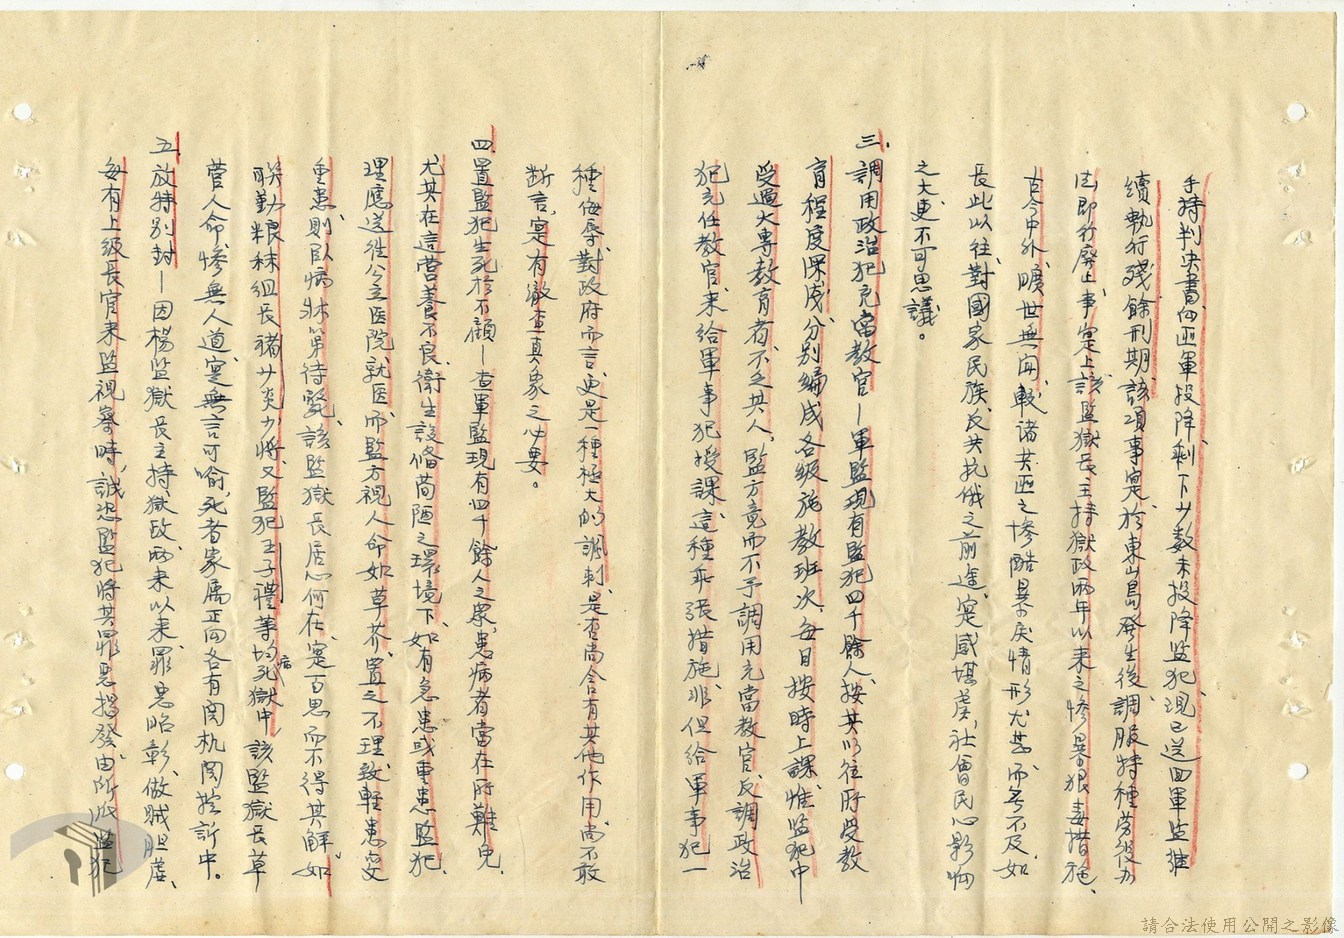 手持判決書向匪軍投降剩下少數未投降監犯、現已送回軍監繼
續執行殘餘刑期、該項事寔、於東山島發生後、調服特種勞役办
法、即行廢止、事寔上該監獄長主持獄政兩年以來之慘暴狠毒措施、
古今中外、曠世無聞、較諸共匪之慘酷暴戾情形尤甚、而有不及、如
長此以往、對國家民族、反共抗俄之前途、寔感堪虞、社會民心影响
之大、更不可思議。
三、調用政治犯充當教官—軍監現有監犯四千餘人、按其以往所受教
育程度深淺、分別編成各級施教班次、每日按時上課、惟監犯中
受過大專教育者、不乏其人、監方竟而不予調用充當教官、反調政治
犯充任教官、來給軍事犯授課、這種乖張措施、非但給軍事犯一
種侮辱、對政府而言、更是一種極大的諷刺、是否尚含有其他作用、尚不敢
断言、寔有澈查真象之必要。
四、置監犯生死於不顧—查軍監現有四千餘人之眾、患病者當在所難免、
尤其在這營養不良、衛生設備茼陋之環境下、如有急患或重患監犯、
理應送往公立医院就医、而監方視人命如草芥、置之不理、致輕患变
重患、則臥病牀笫待斃、該監獄長居心何在、寔百思而不得其解、如
聯勤粮秣組長褚少炎少將、又監犯王子禮等均死獄中、該監獄長草
病
菅人命、慘無人道、寔無言可喻、死者家屬正向各有関机関控訴中。
五、放特別封—因楊監獄長主持獄政兩來以来、罪惡昭彰、做賊胆虛、
每有上級長官来監視察時、誠恐監犯將其罪惡揭發、由所派監犯
請合法使用公開之影像